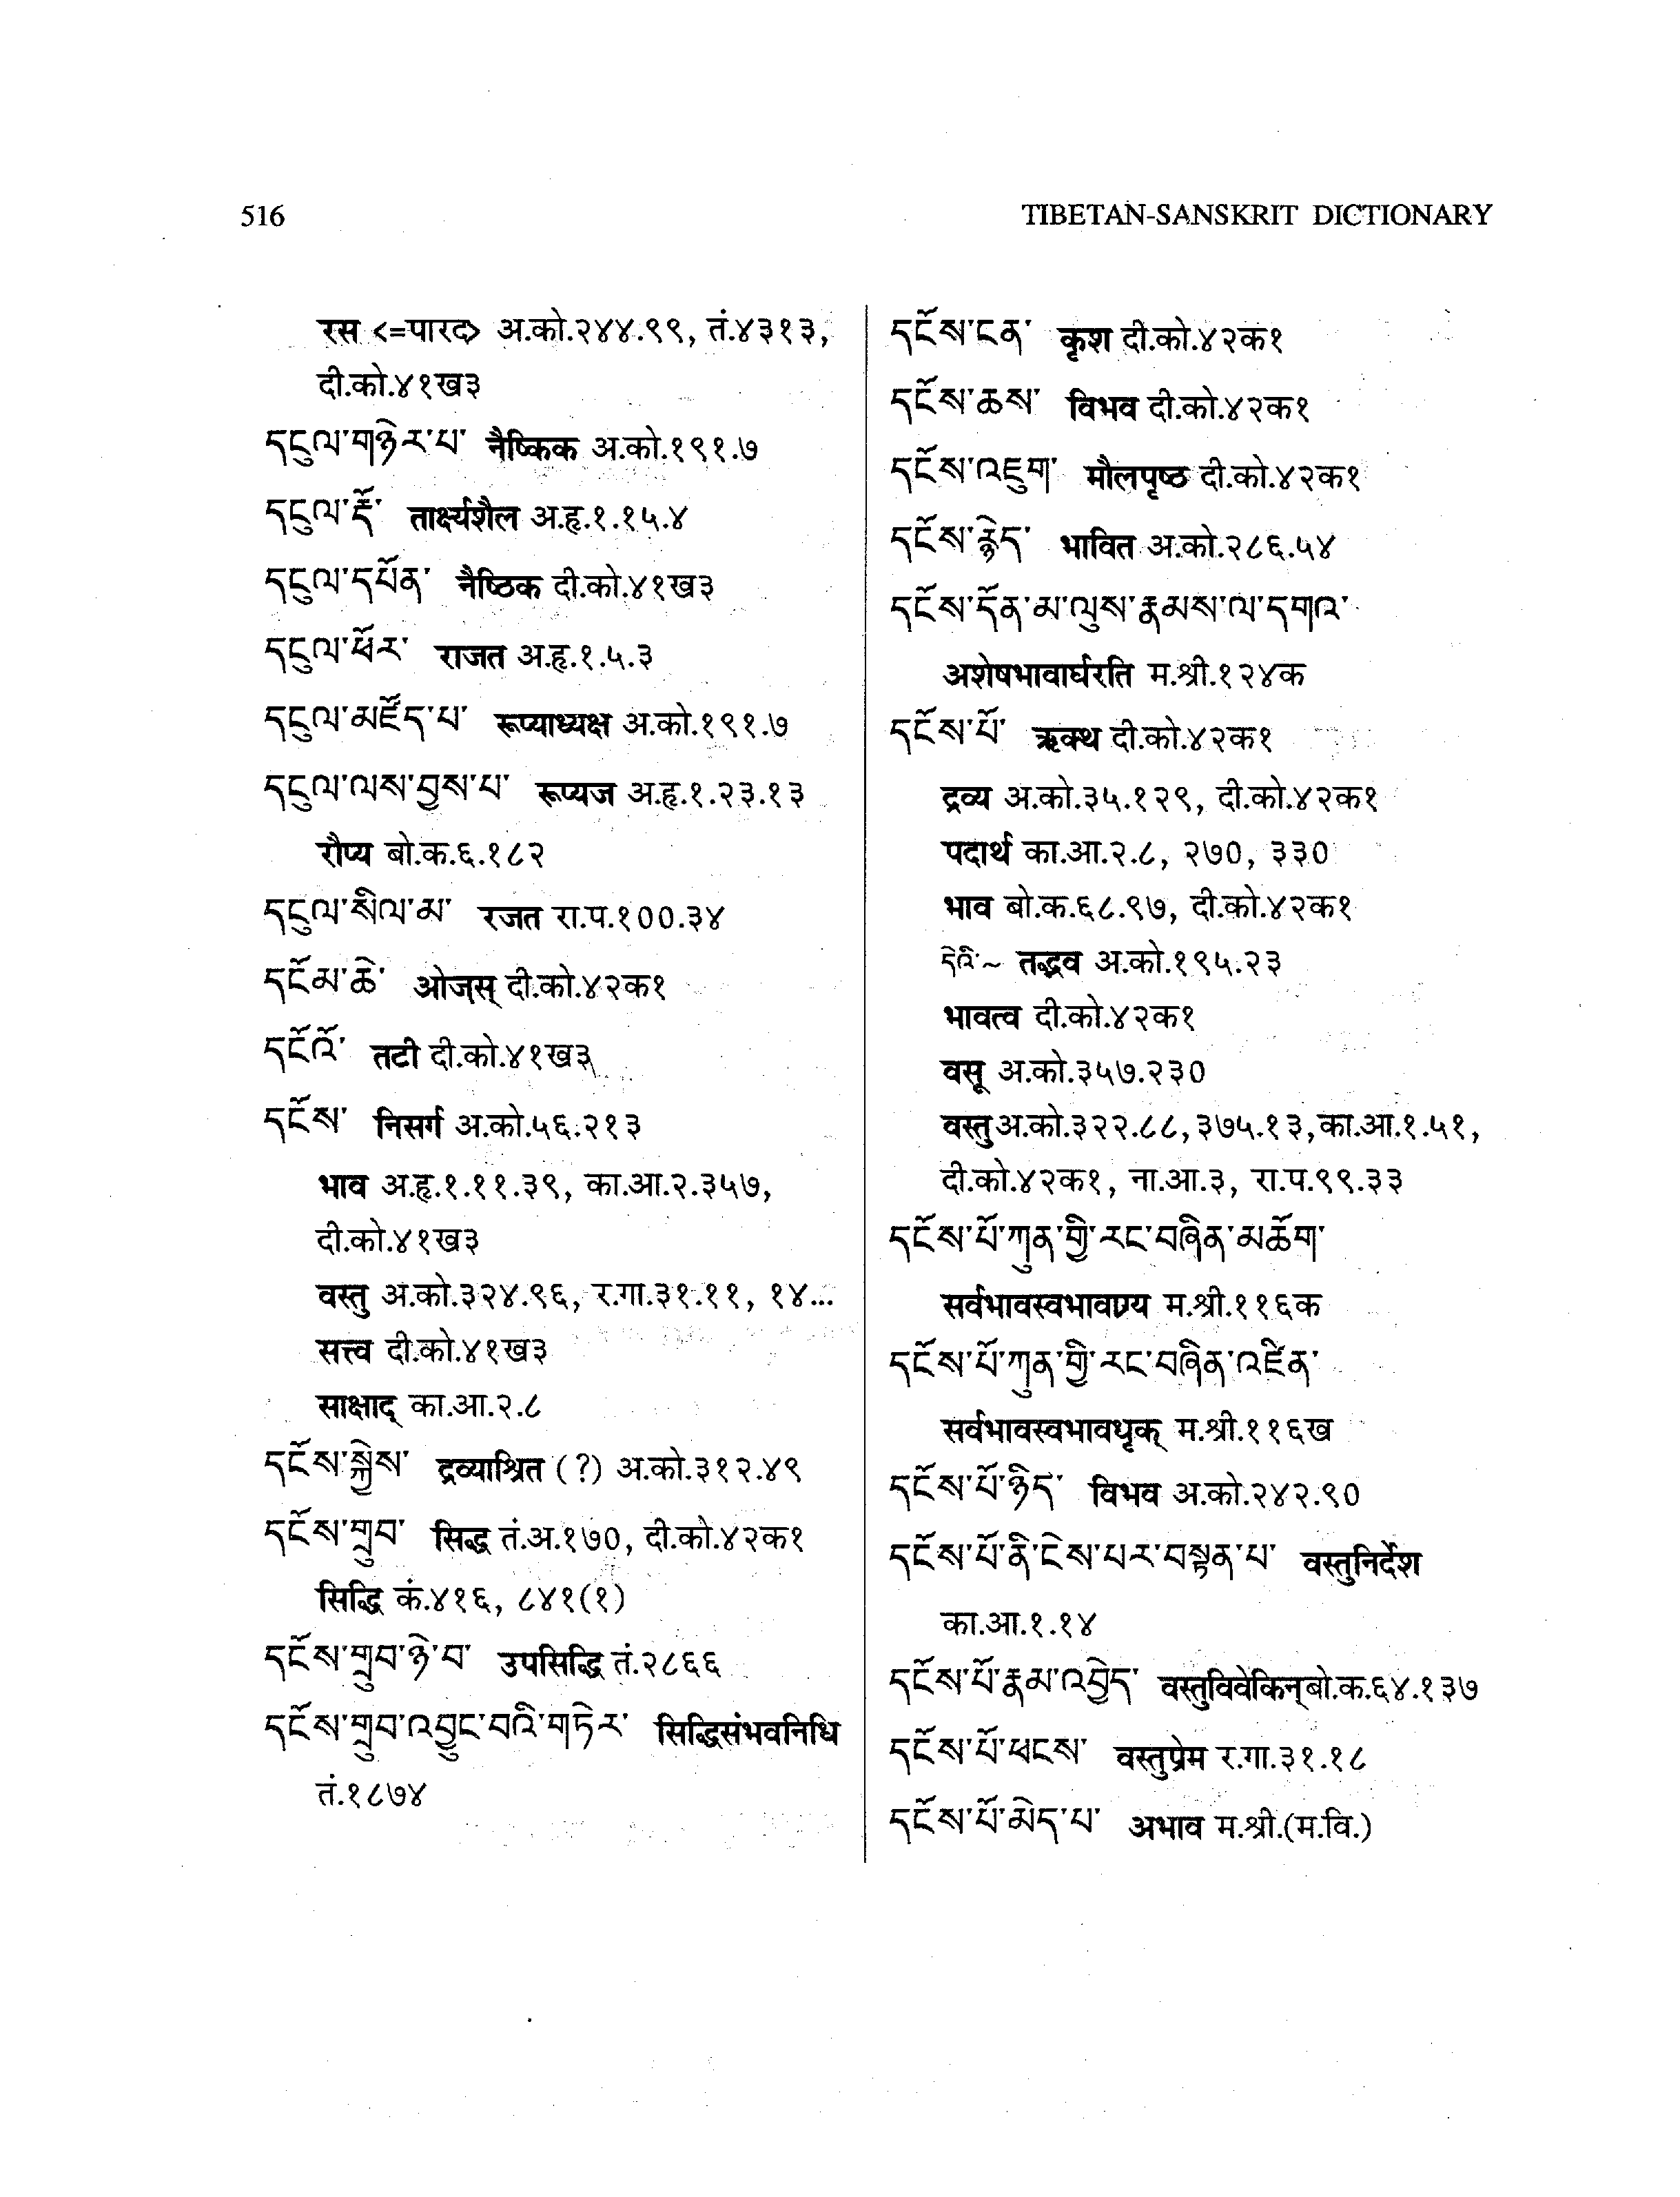 516
TIBETAN-SANSKRIT DICTIONARY
रस <=पारद> अ.को.२४४.९९, तं.४३१३,
दी.को.४१ख३
དངུལ་གཉེར་པ་ नैष्किक अ.को.१९१.७
དངུལ་རྡོ་ तार्क्ष्यशैल अ.हृ.१.१५.४
དངུལ་དཔོན་ नैष्ठिक दी.को.४१ख३
དངུལ་ཕོར་ राजत अ.हृ.१.५.३
དངུལ་མཛོད་པ་ रूप्याध्यक्ष अ.को.१९१.७
དངུལ་ལས་བྱས་པ་ रूप्यज अ.हृ.१.२३.१३
रौप्य बो.क.६.१८२
དངུལ་སིལ་མ་ रजत रा.प.१००.३४
དངོམ་ཆེ་ ओजस् दी.को.४२क१
དངོའོ་ तटी दी.को.४१ख३
དངོས་ निसर्ग अ.को.५६.२१३
भाव अ.हृ.१.११.३९, का.आ.२.३५७,
दी.को.४१ख३
वस्तु अ.को.३२४.९६, र.गा.३१.११, १४...
सत्त्व दी.को.४१ख३
साक्षाद् का.आ.२.८
དངོས་སྐྱེས་ द्रव्याश्रित (?) अ.को.३१२.४९
དངོས་གྲུབ་ सिद्ध तं.अ.१७०, दी.को.४२क१
सिद्धि कं.४१६, ८४१(१)
དངོས་གྲུབ་ཉེ་བ་ उपसिद्धि तं.२८६६
དངོས་གྲུབ་འབྱུང་བའི་གཏེར་ सिद्धिसंभवनिधि
तं.१८७४
དངོས་ངན་ कृश दी.को.४२क१
དངོས་ཆས་ विभव दी.को.४२क१
དངོས་འཇུག་ मौलपृष्ठ दी.को.४२क१
དངོས་རྙེད་ भावित अ.को.२८६.५४
དངོས་དོན་མ་ལུས་རྣམས་ལ་དགའ་
अशेषभावार्घरति म.श्री.१२४क
དངོས་པོ་ ऋक्थ दी.को.४२क१
द्रव्य अ.को.३५.१२९, दी.को.४२क१
पदार्थ का.आ.२.८, २७०, ३३०
भाव बो.क.६८.९७, दी.को.४२क१
དེའི་~ तद्भव अ.को.१९५.२३
भावत्व दी.को.४२क१
वसू अ.को.३५७.२३०
वस्तु अ.को.३२२.८८, ३७५.१३, का.आ.१.५१,
दी.को.४२क१, ना.आ.३, रा.प.९९.३३
དངོས་པོ་ཀུན་གྱི་རང་བཞིན་མཆོག་
सर्वभावस्वभावग्र्य म.श्री.११६क
དངོས་པོ་ཀུན་གྱི་རང་བཞིན་འཛིན་
सर्वभावस्वभावधृक् म.श्री.११६ख
དངོས་པོ་ཉིད་ विभव अ.को.२४२.९०
དངོས་པོ་ནི་ངེས་པར་བསྟན་པ་ वस्तुनिर्देश
का.आ.१.१४
དངོས་པོ་རྣམ་འབྱེད་ वस्तुविवेकिन् बो.क.६४.१३७
དངོས་པོ་ཕངས་ वस्तुप्रेम र.गा.३१.१८
དངོས་པོ་མེད་པ་ अभाव म.श्री.(म.वि.)